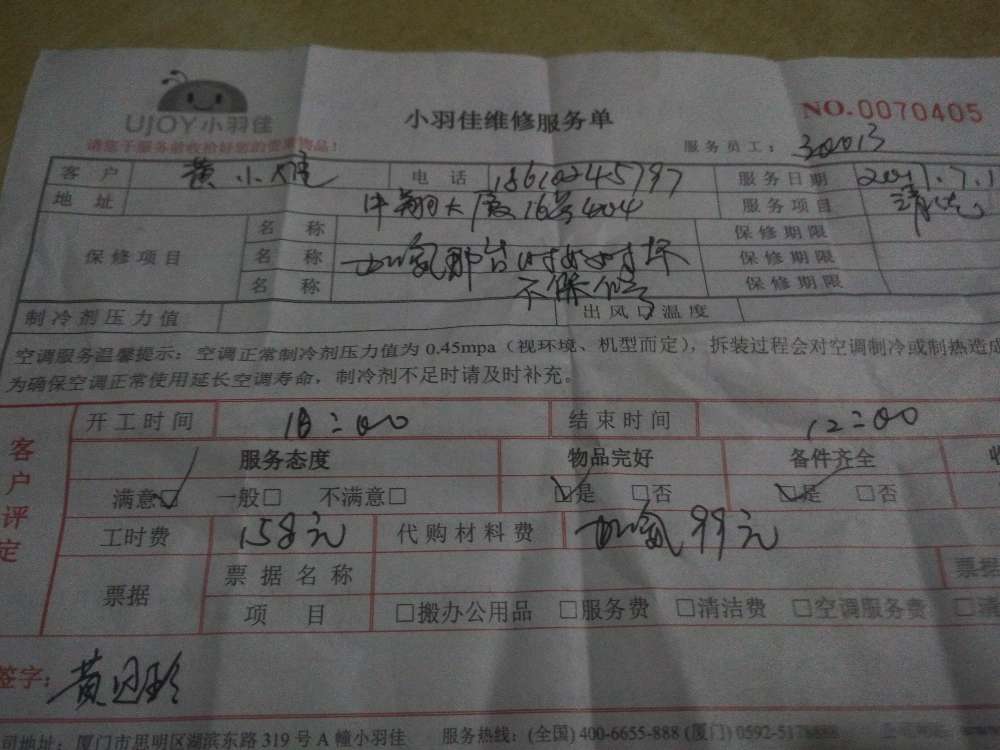 UJOY小羽佳
小羽佳维修服务单
NO.0070405
请您于服务前收拾好您的贵重物品!
服务员工: 30013
客户 黄小姐 电话 服务日期 2017.7.1
地址 大厦16号404 服务项目 清洗
保修项目 名称 保修期限
名称 加氟那台时好时坏 保修期限
名称 不保修 保修期限
制冷剂压力值 出风口温度
空调服务温馨提示:空调正常制冷剂压力值为 0.45mpa(视环境、机型而定),拆装过程会对空调制冷或制热造成
为确保空调正常使用延长空调寿命,制冷剂不足时请及时补充。
客户评定
开工时间 10:00 结束时间 12:00
服务态度 物品完好 备件齐全
满意☑ 一般□ 不满意□ ☑是 □否 ☑是 □否
工时费 158元 代购材料费 加氟99元
票据 票据名称 票据
项目 □搬办公用品 □服务费 □清洁费 □空调服务费
签字:
司地址:厦门市思明区湖滨东路 319 号 A 幢小羽佳 服务热线:(全国) 400-6655-888 (厦门) 0592-